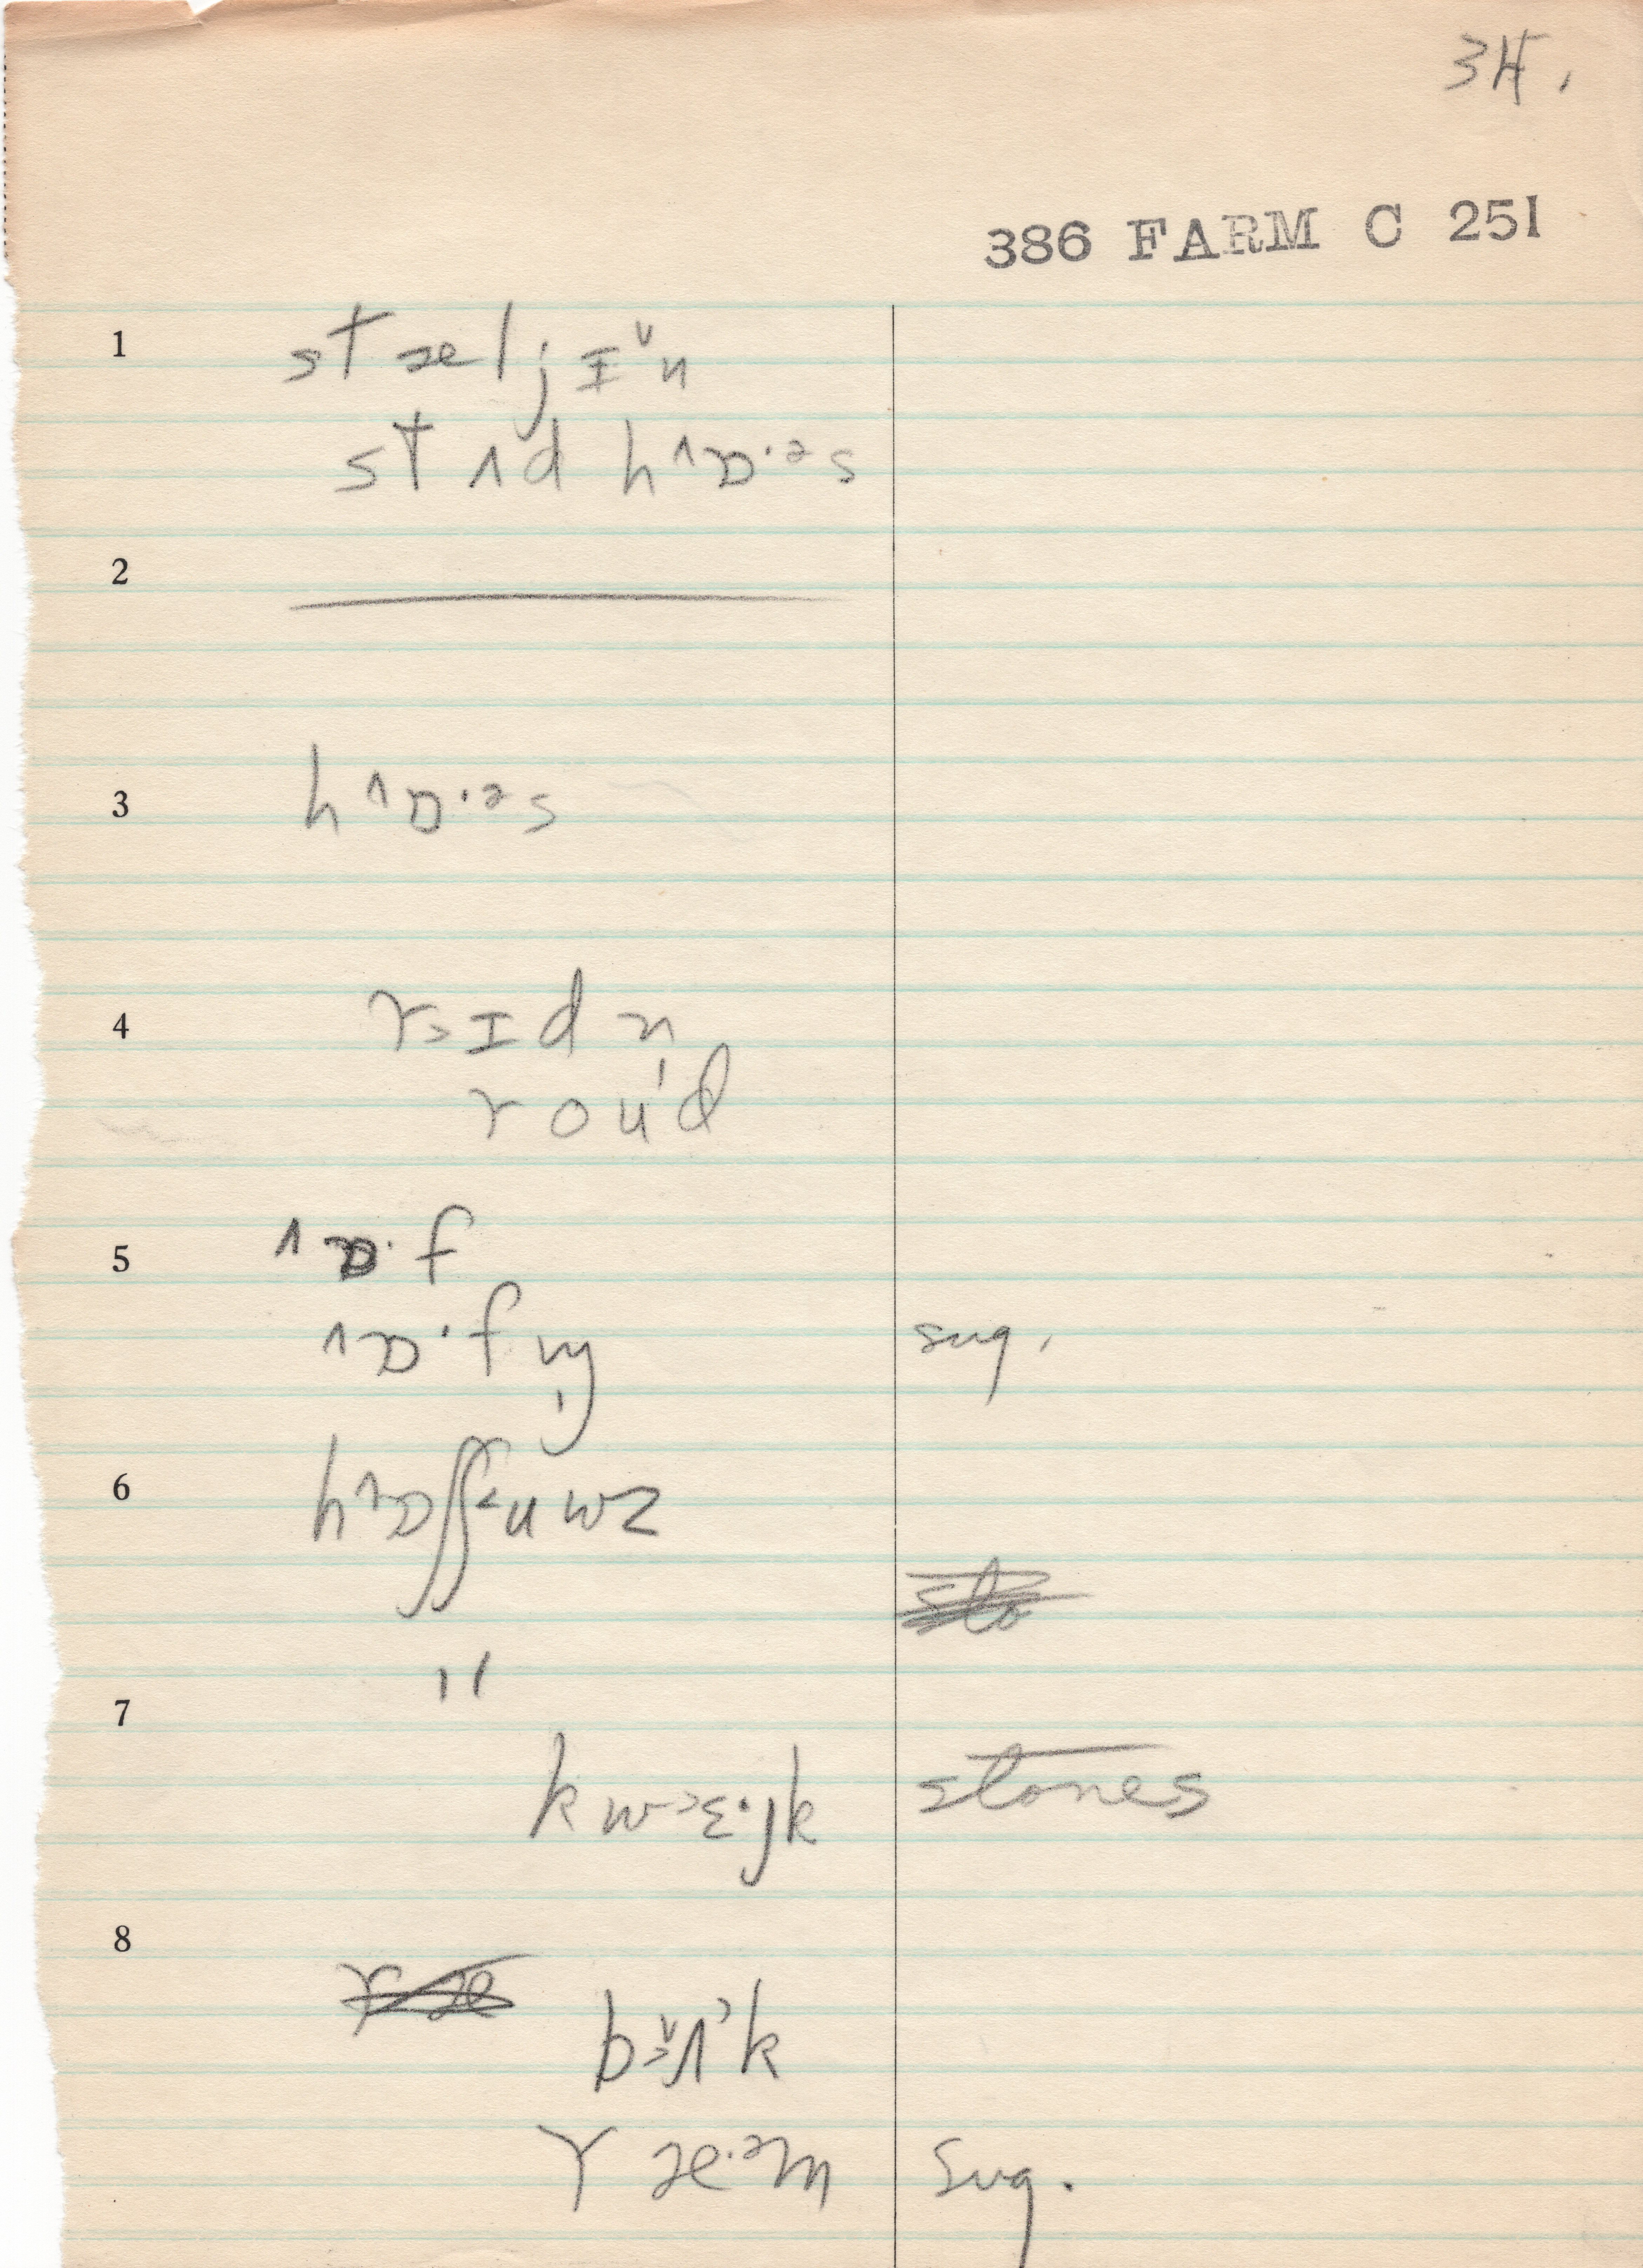 34.
386 FARM C 251
1 stæljɪ˅n
stʌd h^ɒ·ᵊs
2
3 h^ɒ·ᵊs
4 r>ɪdn
roud
5 ^ɒ·f
^ɒ·fɪŋ sug.
6 h^ɒʃʃ<uwz
7 "
kw>ɛ·jk stones
8
b>ʌk
ræ·ᵊm sug.